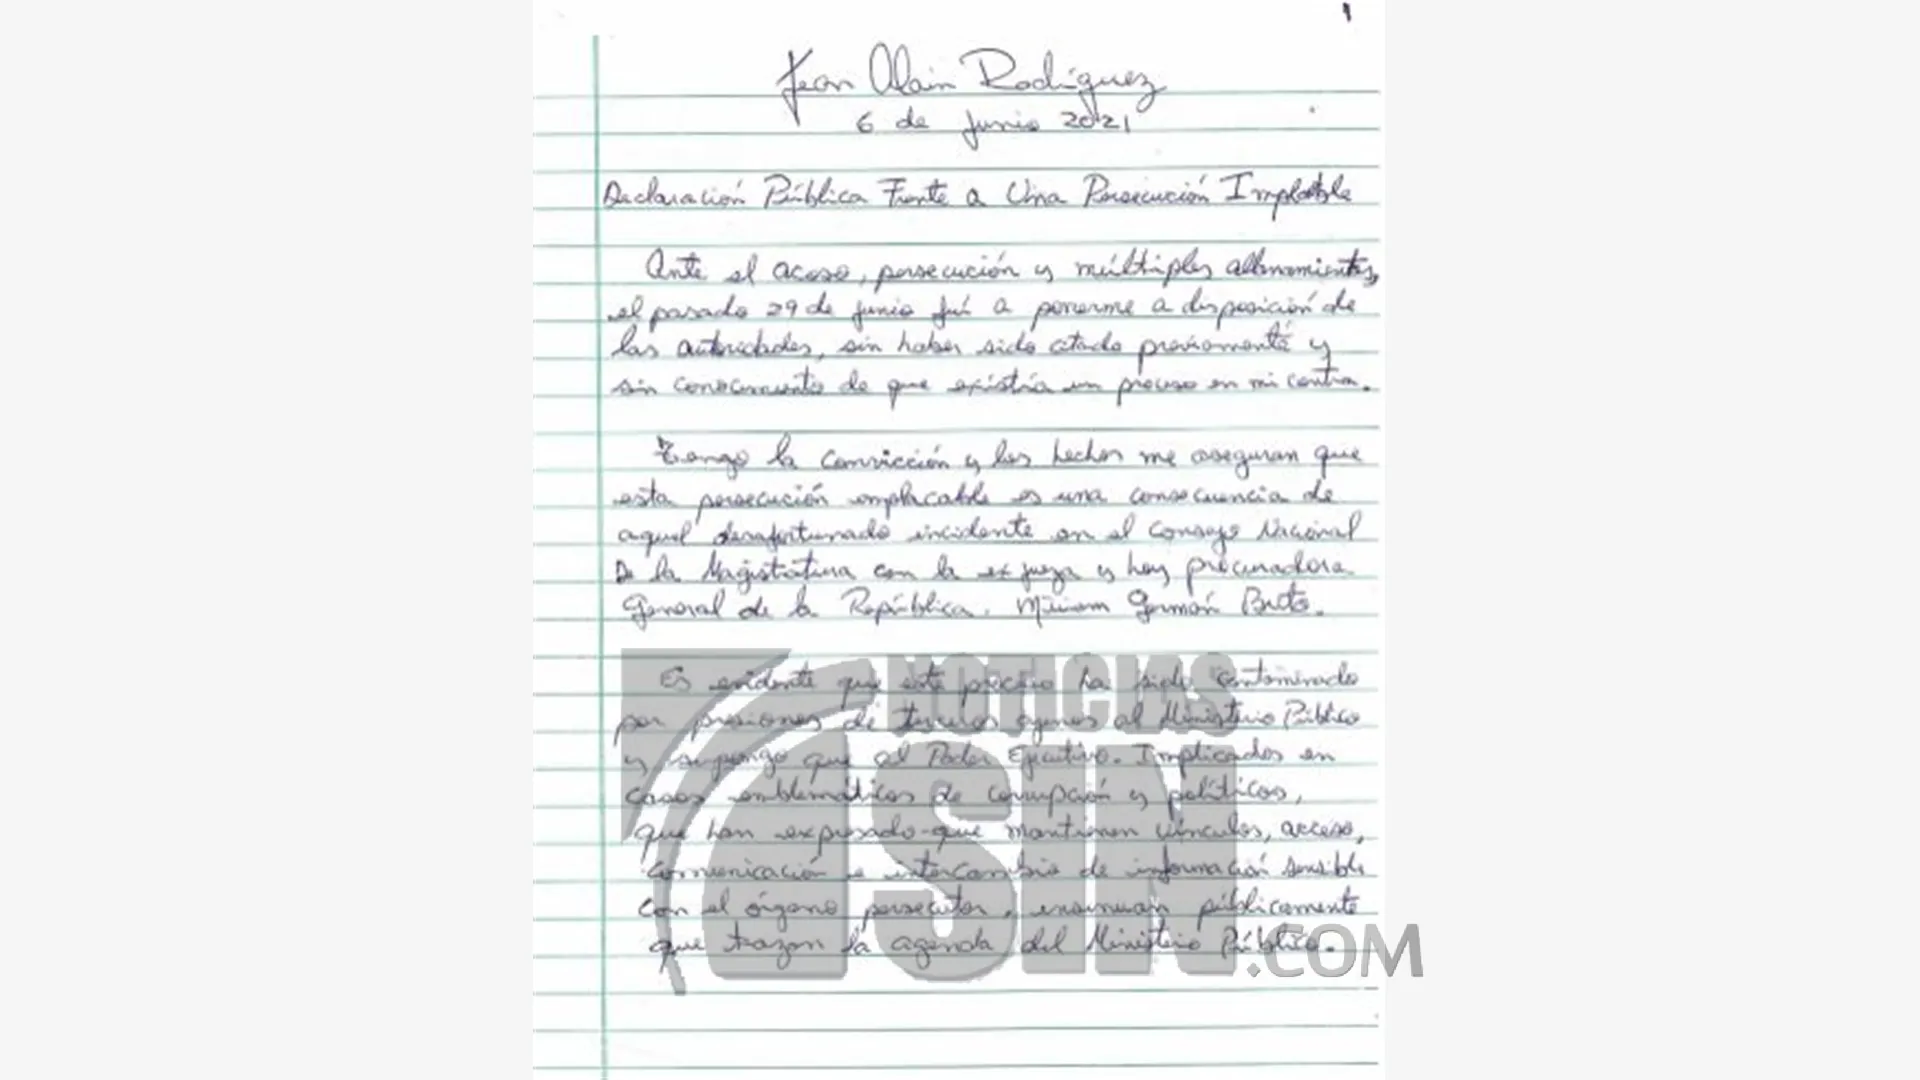 1
Jean Alain Rodríguez
6 de junio 2021
Declaración Pública Frente a Una Persecución Implacable
Ante el acoso, persecución y múltiples allanamientos,
el pasado 29 de junio fuí a ponerme a disposición de
las autoridades, sin haber sido citado previamente y
sin conocimiento de que existía un proceso en mi contra.
Tengo la convicción y los hechos me aseguran que
esta persecución implacable es una consecuencia de
aquel desafortunado incidente en el Consejo Nacional
De la Magistratura con la ex jueza y hoy procuradora
General de la República. Miriam Germán Brito.
Es evidente que este proceso ha sido contaminado
por presiones de terceros ajenos al Ministerio Público
y supongo que al Poder Ejecutivo. Implicados en
casos emblemáticos de corrupción y políticos,
que han expresado que mantienen vínculos, acceso,
comunicación e intercambio de información sensible
con el órgano persecutor, insinuan públicamente
que trazan la agenda del Ministerio Público.
NOTICIAS
SIN
.COM